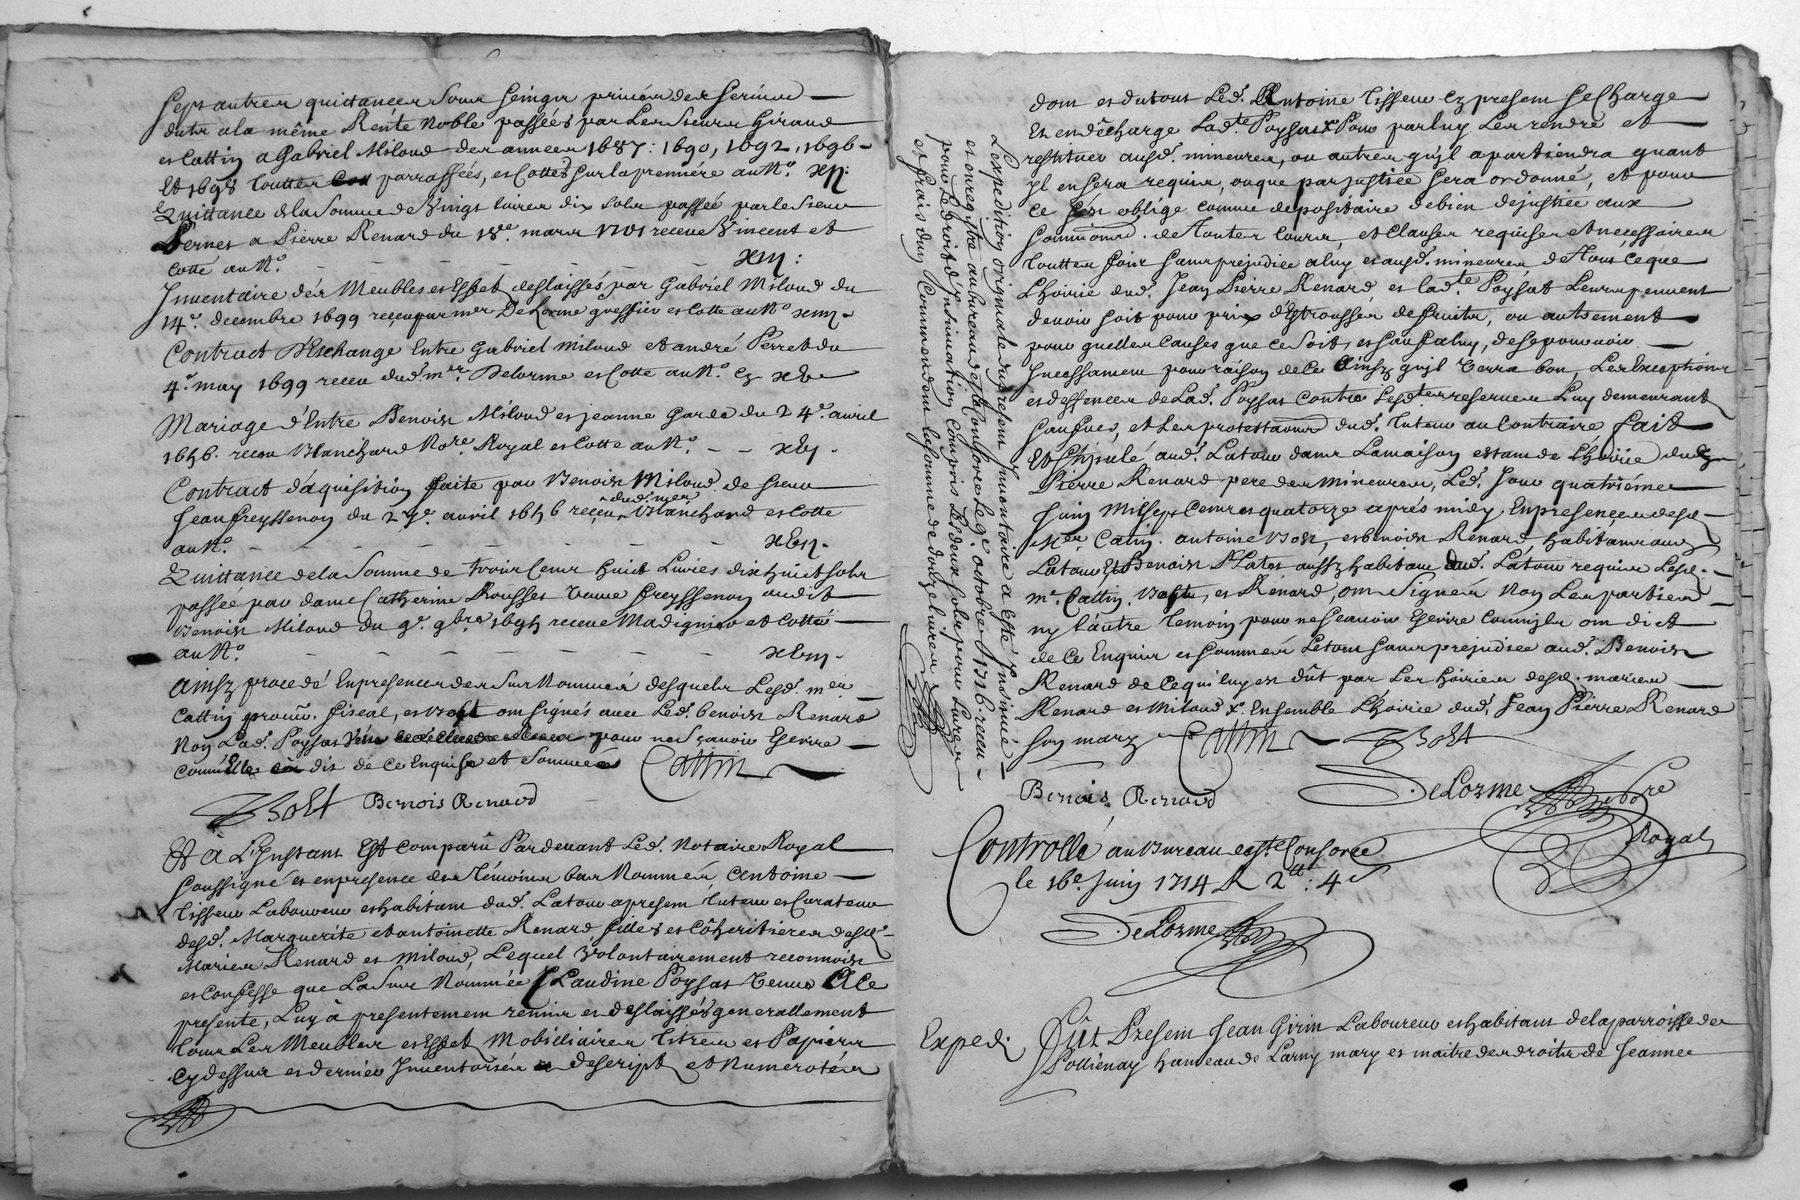 Sept autres quittances sous seings privés des servis
deubs a la même Rente Noble passées par Les Sieurs Giraud
et Cattin a Gabriel Miloud des années 1687: 1690, 1692, 1696
Et 1698 touttes parraffées, et Cottés sur la première au N.º xii:
Quittance de la Somme de Vingt livres dix sols passée par le Sieur
Pernet a Pierre Renard du 18.e mars 1701 receue Vincent et
cotté au N.º xiii:
Inventaire des Meubles et Effet deslaissés par Gabriel Miloud du
14.e decembre 1699 reçeu par mer DeLorme greffier et Cotte au N.º xiiii.
Contract D'Eschange Entre Gabriel Miloud et andré Perret du
4.e may 1699 receu dud. mer. Delorme et Cotte au N.º xv
Mariage d'Entre Benoist Miloud et jeanne Garde du 24.e avril
1656. receu Blanchard No.re Royal et Cotte au N.º xvi.
Contract d'aquisition faite par Benoist Miloud de sieur
Jean freyssenon du 27.e avril 1656 reçeu dud. mer Blanchard et Cotte
au N.º xvii.
Quittance de la Somme de trois Cens huict Livres dix huict sols
passée par dame Catherine Rousset veuve freyssenon audit
Benoist Miloud du 9.e 9bre 1695 receue Madignier et Cotté
au N.º xviii.
Ainsy procedé En presence des sus Nommés desquels Lesd. mers
Cattin procur. fiscal, et Bost ont signés avec Led. benoist Renard
Non Lad. Poysat pour ne sçavoir Escrire
Comm'Elle dit de ce Enquise et Sommée Cattin
Bost Benois Renard
Et à L'Instant Est Comparû Pardevant Led. Notaire Royal
soussigné et en presence des témoins bas Nommés Antoine
Tisseur Laboureur et habitant dud. Latour a present tuteur et Curateur
desd. Marguerite et antoinette Renard filles et Cohéritières desd.
Maries Renard et Miloud, Lequel Volontairement reconnoist
et Confesse que La Sus Nommée Claudine Poysat Veuve A Ce
presente, Luy à presentement remis et deslaissés generallement
tous Les Meubles et Effet Mobiliaires titres et Papiers
Cy dessus et dernier Inventoriés descript et Numerotés
dont et du tout Led. Antoine Tisseur Cy present Se Charge
Et en décharge Lad.te Poysat Pour par luy Les rendre et
restituer ausd. mineures, ou autres qu'jl apartiendra quant
jl en sera requis, ou que par justice sera ordonné, et pour
ce s'est obligé comme depositaire de bien de justice aux
soumissions. de toutes Cours, et Clauses requises et necessaires
touttes fois sans prejudice a luy et ausd. mineures de tous ce que
L'hoirie dud. Jean Pierre Renard, et lad.te Poysat Leurs peuvent
devoir soit pour prix d'Estrousses de fruits, ou autrement
pour quelles causes que ce soit, et sauf a luy, de se pourvoir
Incessament pour raison de Ce Ainsy qu'jl verra bon, Les Exceptions
et deffences de Lad. Poysat Contre Lesd.tes reserves Luy demeurant
sauves, et Les protestations dud. tuteur au Contraire fait
Et Stipulé aud. Latour dans La maison estant de L'hoirie dud.
Pierre Renard pere des mineures, Led. Jour quatrième
Juin Mil sept Cens et quatorze après midy En presence desd.
Mer Cattin. antoine Bost, et benoist Renard, habitans aud.
Latour Et Benoist Platet aussy habitant dud. Latour requis Lesd.
m.e Cattin, Bost, et Renard, ont Signés Non Les parties
ny l'autre temoin pour ne scavoir Escrire comm'jls ont dict
de Ce Enquis et sommés Le tout sans prejudice aud. Benoist
Renard de Ce qui luy est dût par Les hoiries desd. maries
Renard et Miloud Ensemble L'hoirie dud. Jean Pierre Renard
son mary Cattin Bost
Benois Renard DeLorme No.re
Royal
Controllé au Bureau de S.te Consorce
le 16.e Juin 1714 R 2 tt: 4 s
DeLorme
Exped. Fût Present Jean Girin Laboureur et habitant de la parroisse de
Pollienay hameau de Larny mary et maitre des droits de Jeanne
L'expedition originale du present Inventaire a esté Insinué
et enregistré au bureau de Ste Consorce Le 9.e octobre 1716 receu
pour Le droit d'Insinuation compris Les deux sols pour Livres
et frais du Commendem. la somme de douze livres